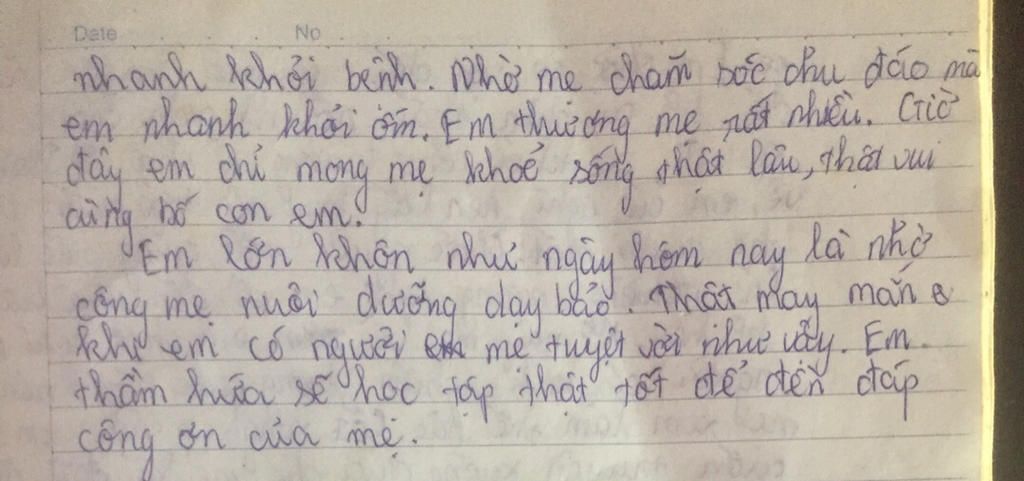 Date No
nhanh khỏi bệnh. Nhờ mẹ chăm sóc chu đáo mà
em nhanh khỏi ốm. Em thương mẹ rất nhiều. Giờ
đây em chỉ mong mẹ khoẻ sống thật lâu, thật vui
cùng bố con em.
Em lớn khôn như ngày hôm nay là nhờ
công mẹ nuôi dưỡng dạy bảo. Thật may mắn
khi em có người mẹ tuyệt vời như vậy. Em
thầm hứa sẽ học tập thật tốt để đền đáp
công ơn của mẹ.